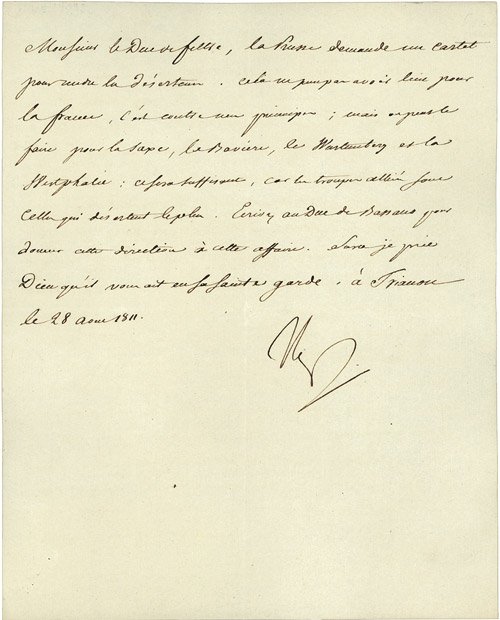 Monsieur le Duc de feltre, la Prusse demande un cartel
pour rendre les déserteurs. cela ne peut pas avoir lieu pour
la france, c'est contre nos principes; mais on peut le
faire pour la Saxe, la Bavière, le Wurtemberg et la
Westphalie: ce sera suffisant, car les troupes alliées sont
celles qui désertent le plus. Ecrivez au Duc de Bassano pour
donner cette direction à cette affaire. Sur ce je prie
Dieu qu'il vous ait en sa sainte garde. à Trianon
le 28 aout 1811.
Np